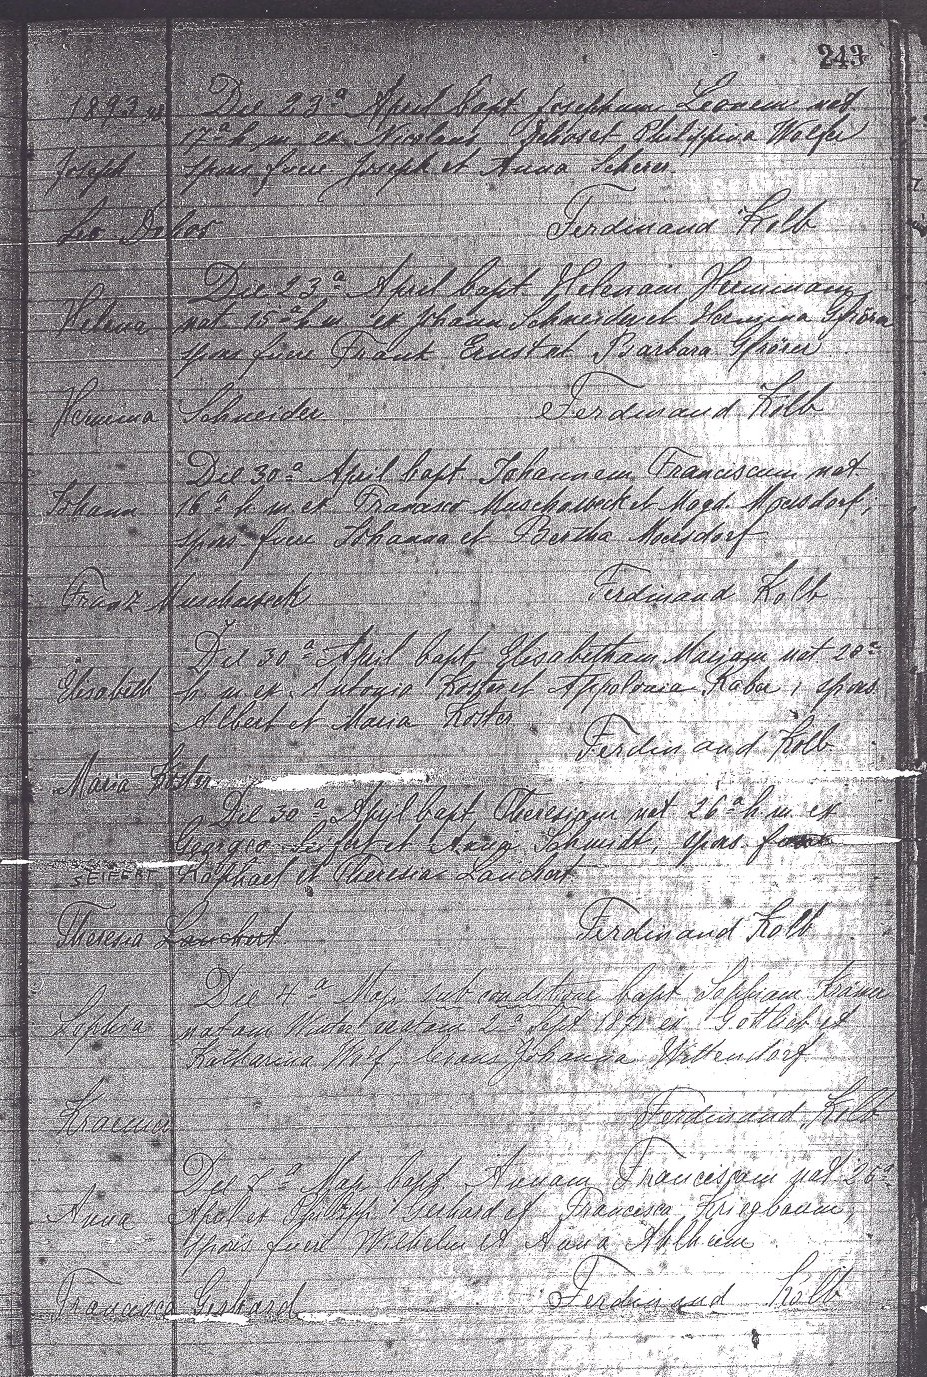 243
1893 Die 23ª April bapt. Josephum Leonem nat
17ª h. m. ex Nicolaus Dehos et Philippina Wolfer
Joseph spons fuere Joseph et Anna Scherer.
Leo Dehos Ferdinand Kolb
Die 23ª April bapt. Helenam Herminam
Helena nat. 15ª h. m. ex Johann Schneider et Hermina Gfrörer
spons fuere Frank Ernst et Barbara Gfrörer
Hermina Schneider Ferdinand Kolb
Die 30ª April bapt. Johannem Franciscum nat.
Johann 16ª h. m. ex Francisco Muschaweck et Magd. Moersdorf;
spons fuere Johanna et Bertha Moersdorf
Franz Muschaweck Ferdinand Kolb
Die 30ª April bapt. Elisabetham Mariam nat 20ª
Elisabeth h. m. ex Antonio Koster et Appolonia Raber, spons
Albert et Maria Koster
Ferdinand Kolb
Maria Koster
Die 30ª April bapt. Theresiam nat 26ª h. m. ex
Georgio Seifert et Anna Schmidt, spons fuere
SEIFERT Raphael et Theresia Lanchert
Theresia Lanchert Ferdinand Kolb
Die 4ª May sub conditione bapt Sophiam Kramer
Sophia natam 2ª Sept 1871 ex Gottlieb et
Katharina Wolf, levans Johanna Wittendorf
Kraemer Ferdinand Kolb
Die 7ª May bapt Annam Franciscam nat 25ª
Anna April ex Philipp Gerhard et Francisca Kriegbaum,
spons fuere Wilhelm et Anna Ahlheim
Francisca Gerhard Ferdinand Kolb